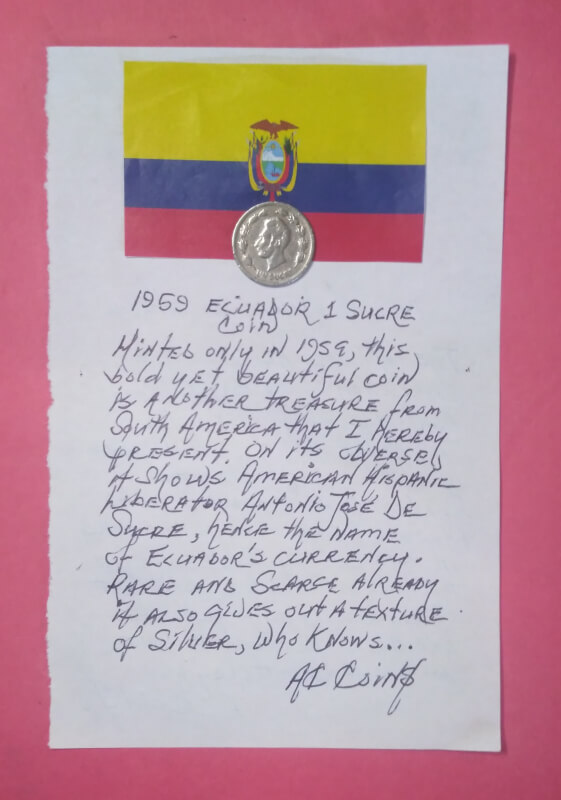 1959 ECUADOR 1 SUCRE
COIN
MINTED only in 1959, this
bold yet beautiful coin
is ANOTHER TREASURE from
South AMERICA that I hereby
present. ON its OBVERSE,
it Shows AMERICAN HISPANIC
LIBERATOR ANTONIO JOSE DE
SUCRE, hence the NAME
of ECUADOR'S CURRENCY.
RARE AND SCARCE ALREADY
it ALSO gives out A texture
of SILVER, Who KNOWS...
AC COIN$